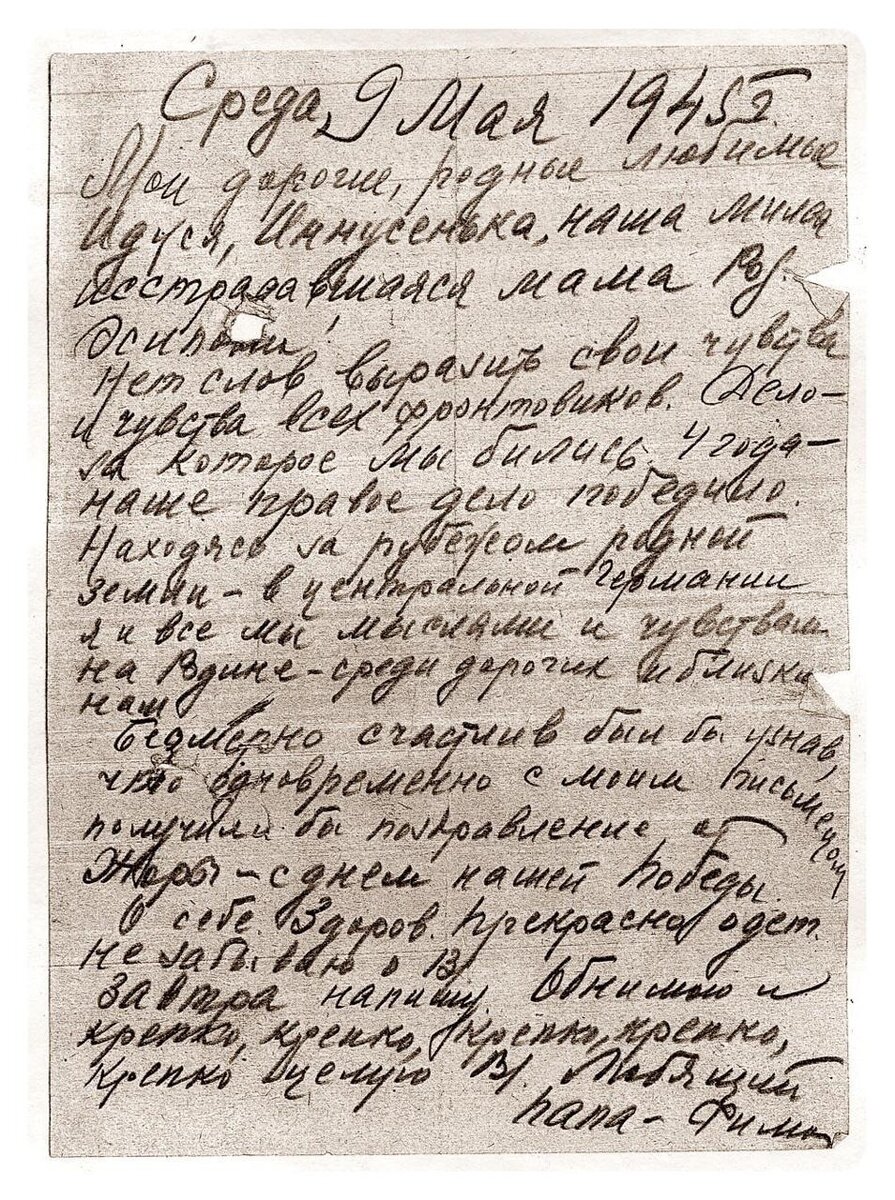 Среда, 9 Мая 1945 г.
Мои дорогие, родные любимые
Идуся, Иннусенька, наша милая
исстрадавшаяся мама Роз.
Осиповн!
Нет слов выразить свои чувства
и чувства всех фронтовиков. Дело–
за которое мы бились 4 года–
наше правое дело победило.
Находясь за рубежом родной
земли – в центральной Германии
я и все мы мыслями и чувствам
на Родине – среди дорогих и близких
нам
Безмерно счастлив был бы узнав,
что одновременно с моим письмецом
получили бы поздравление от
Жоры – с днем нашей Победы.
О себе. Здоров. Прекрасно одет.
Не забываю о
Завтра напишу. Обнимаю и
крепко, крепко, крепко, крепко,
крепко целую Любящий
папа – Фима